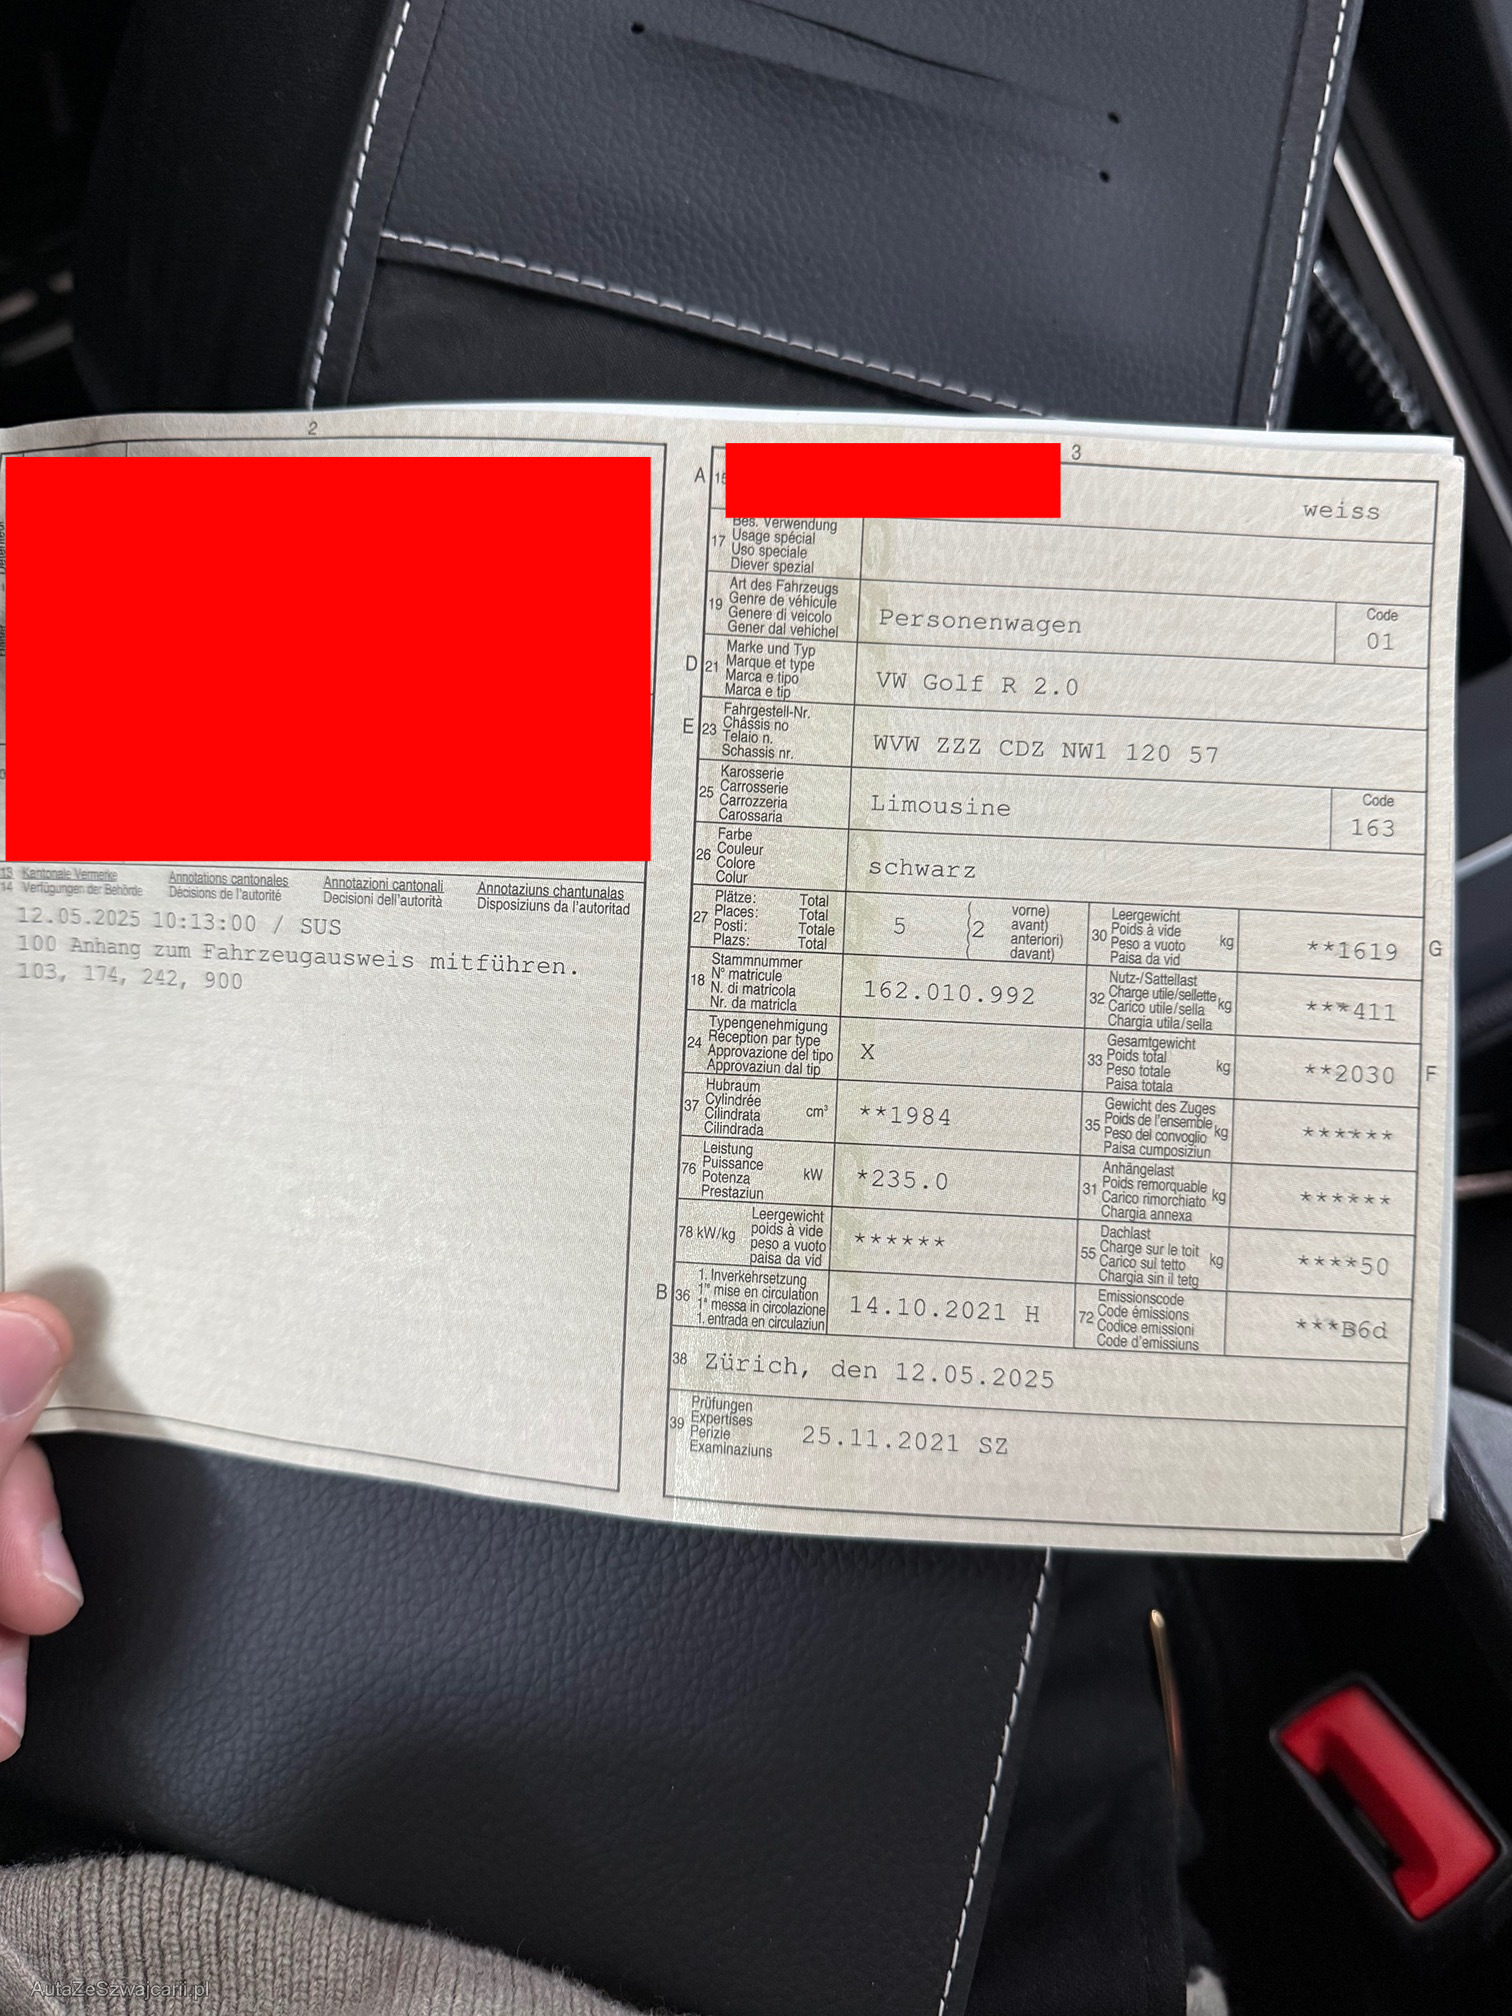 2
13 Kantonale Vermerke Annotations cantonales Annotazioni cantonali Annotaziuns chantunalas
14 Verfügungen der Behörde Décisions de l'autorité Decisioni dell'autorità Disposiziuns da l'autoritad
12.05.2025 10:13:00 / SUS
100 Anhang zum Fahrzeugausweis mitführen.
103, 174, 242, 900
3
A 15
weiss
17 Bes. Verwendung
Usage spécial
Uso speciale
Diever spezial
19 Art des Fahrzeugs
Genre de véhicule
Genere di veicolo
Gener dal vehichel
Personenwagen
Code
01
D 21 Marke und Typ
Marque et type
Marca e tipo
Marca e tip
VW Golf R 2.0
E 23 Fahrgestell-Nr.
Châssis no
Telaio n.
Schassis nr.
WVW ZZZ CDZ NW1 120 57
25 Karosserie
Carrosserie
Carrozzeria
Carossaria
Limousine
Code
163
26 Farbe
Couleur
Colore
Colur
schwarz
27 Plätze: Total
Places: Total
Posti: Totale
Plazs: Total
5 (2 vorne)
avant)
anteriori)
davant)
30 Leergewicht
Poids à vide
Peso a vuoto
Paisa da vid
kg
**1619 G
18 Stammnummer
N° matricule
N. di matricola
Nr. da matricla
162.010.992
32 Nutz-/Sattellast
Charge utile/sellette
Carico utile/sella
Chargia utila/sella
kg
***411
24 Typengenehmigung
Réception par type
Approvazione del tipo
Approvaziun dal tip
X
33 Gesamtgewicht
Poids total
Peso totale
Paisa totala
kg
**2030 F
37 Hubraum
Cylindrée
Cilindrata
Cilindrada
cm³
**1984
35 Gewicht des Zuges
Poids de l'ensemble
Peso del convoglio
Paisa cumposiziun
kg
******
76 Leistung
Puissance
Potenza
Prestaziun
kW
*235.0
31 Anhängelast
Poids remorquable
Carico rimorchiato
Chargia annexa
kg
******
78 kW/kg Leergewicht
poids à vide
peso a vuoto
paisa da vid
******
55 Dachlast
Charge sur le toit
Carico sul tetto
Chargia sin il tetg
kg
****50
B 36 1. Inverkehrsetzung
1re mise en circulation
1a messa in circolazione
1. entrada en circulaziun
14.10.2021 H
72 Emissionscode
Code émissions
Codice emissioni
Code d'emissiuns
***B6d
38 Zürich, den 12.05.2025
39 Prüfungen
Expertises
Perizie
Examinaziuns
25.11.2021 SZ
AutaZeSzwajcarii.pl